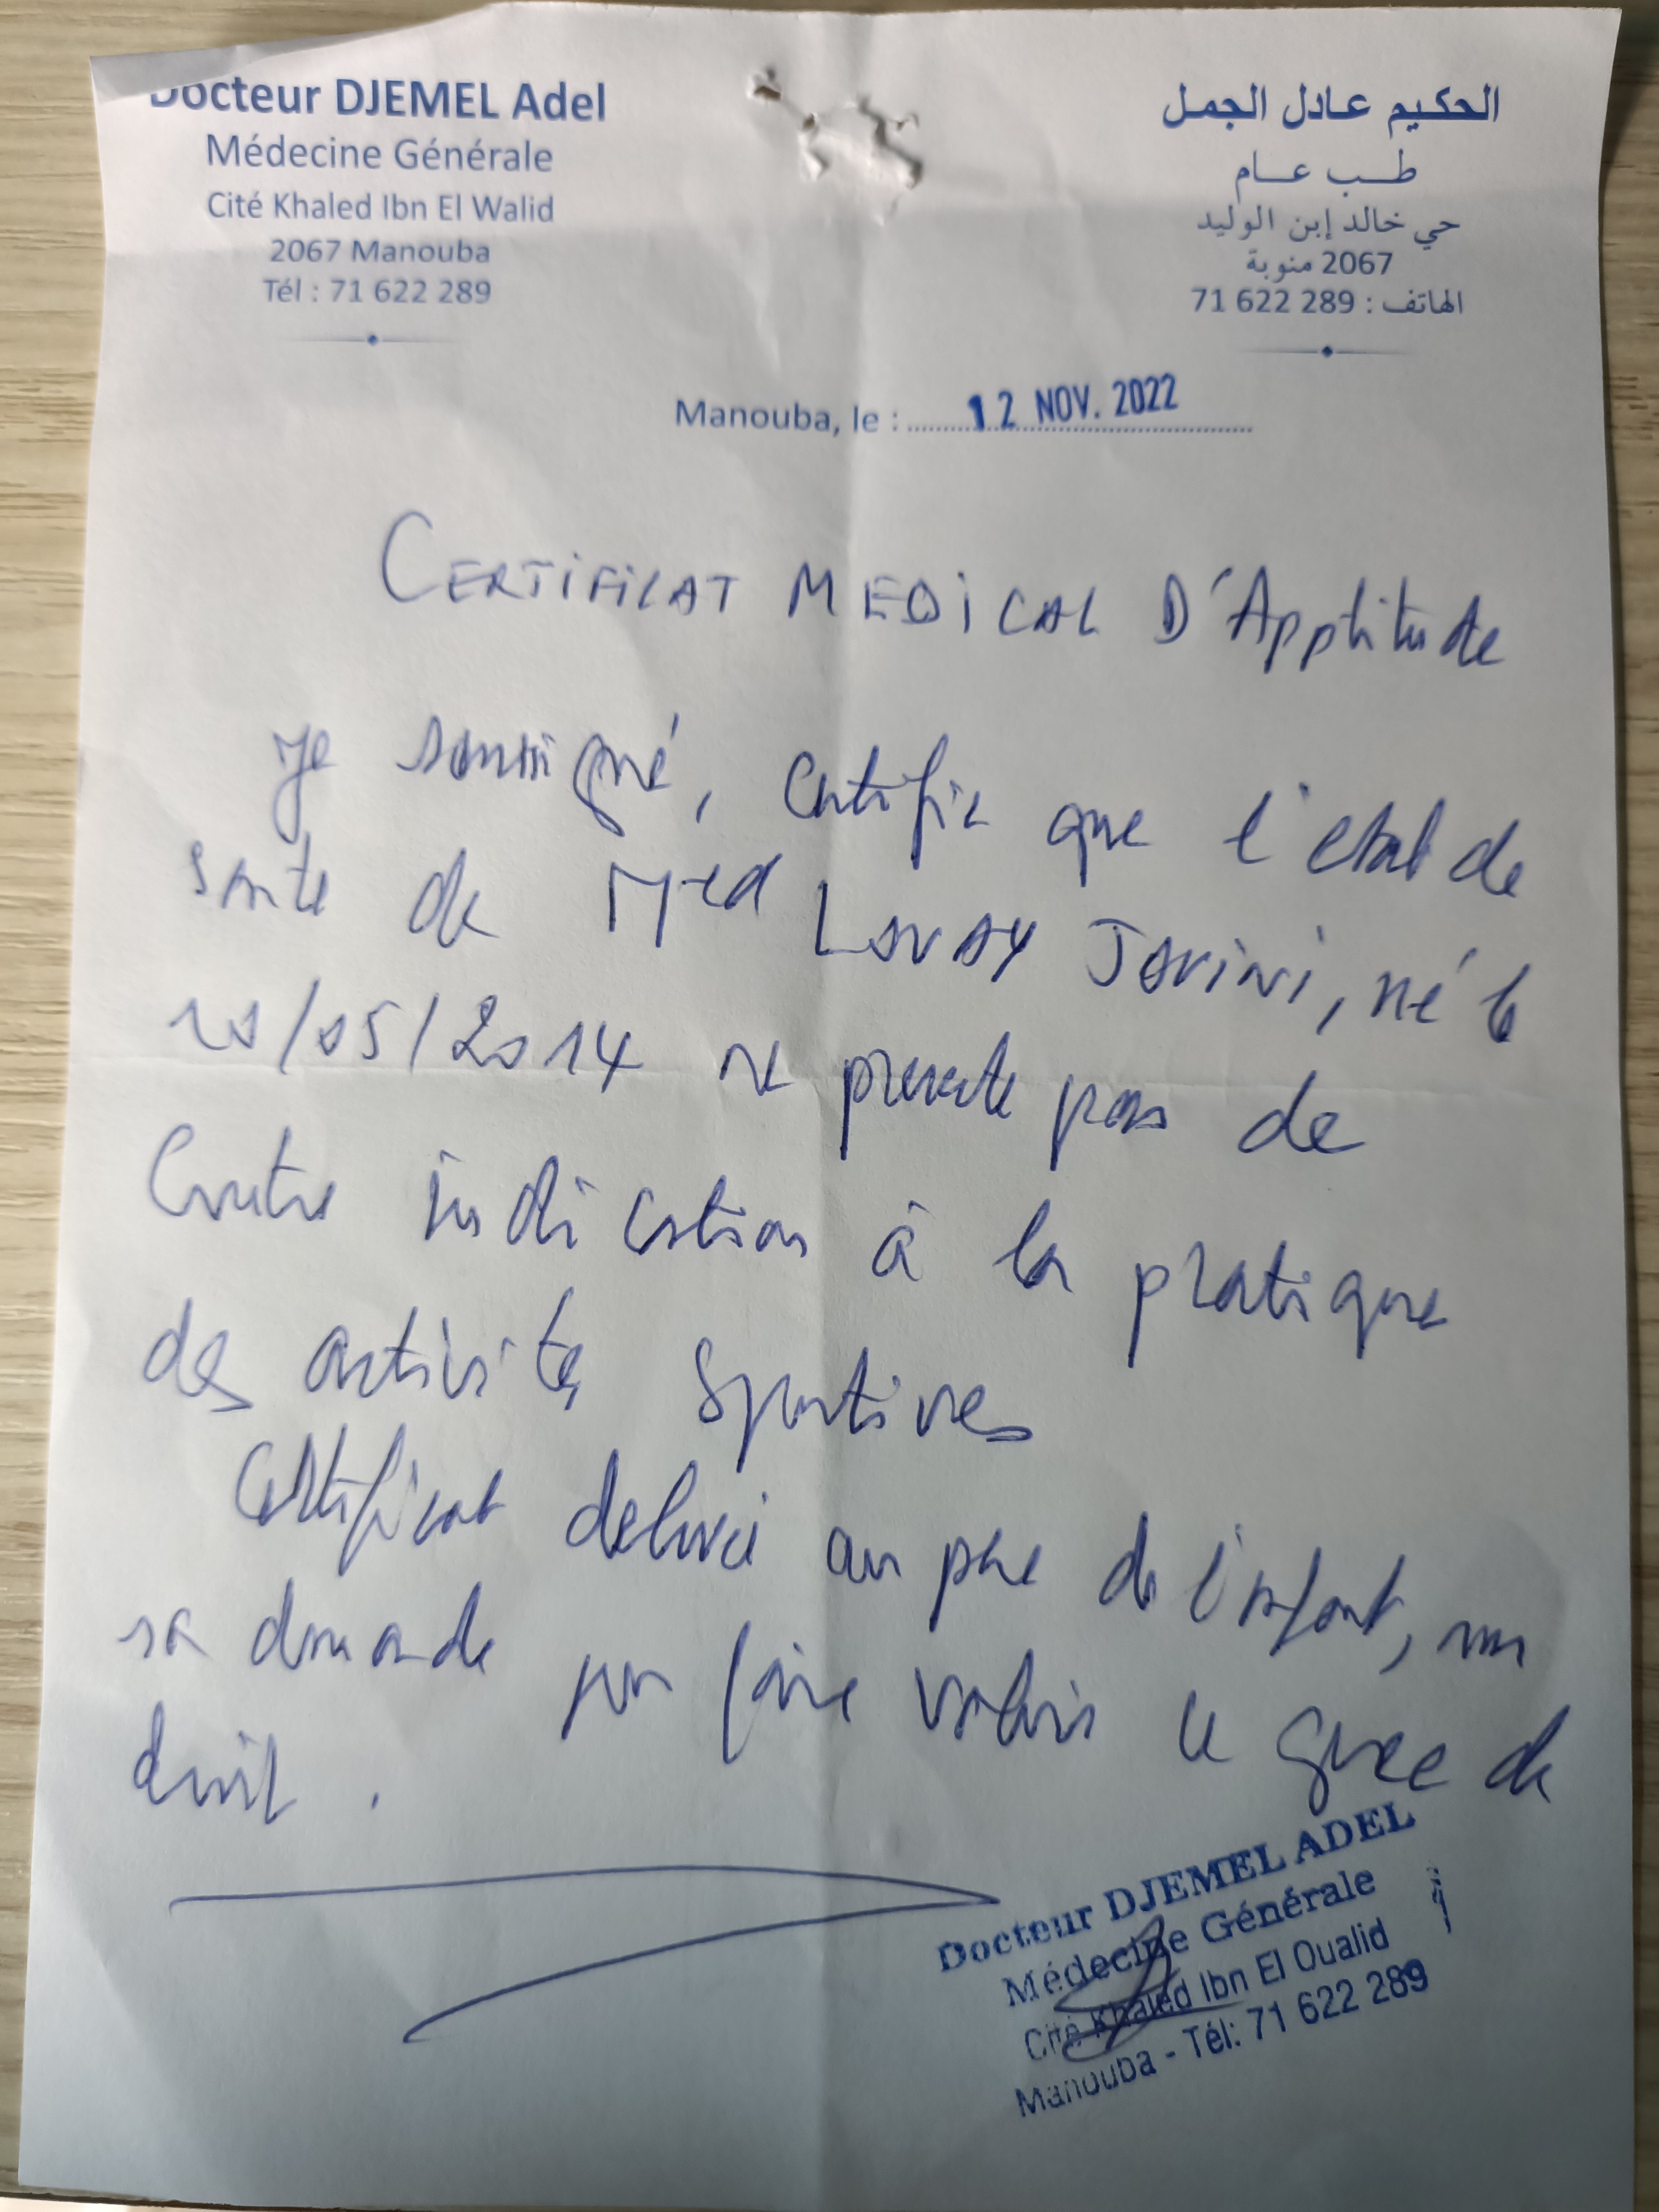 Docteur DJEMEL Adel
Médecine Générale
Cité Khaled Ibn El Walid
2067 Manouba
Tél : 71 622 289
الحكيم عادل الجمل
طب عام
حي خالد إبن الوليد
2067 منوبة
الهاتف : 289 622 71
Manouba, le : 12 NOV. 2022
CERTIFICAT MEDICAL D'Apptitude
Je soussigné, certifie que l'etat de
sante de Med Louay, né le
/05/2014 ne presente pas de
Contre indication à la pratique
des activités Sportives
Certificat delivré au père de l'enfant, sur
sa demande pour faire valoir ce que de
droit.
Docteur DJEMEL ADEL
Médecine Générale
Cité Khaled Ibn El Oualid
Manouba - Tél: 71 622 289